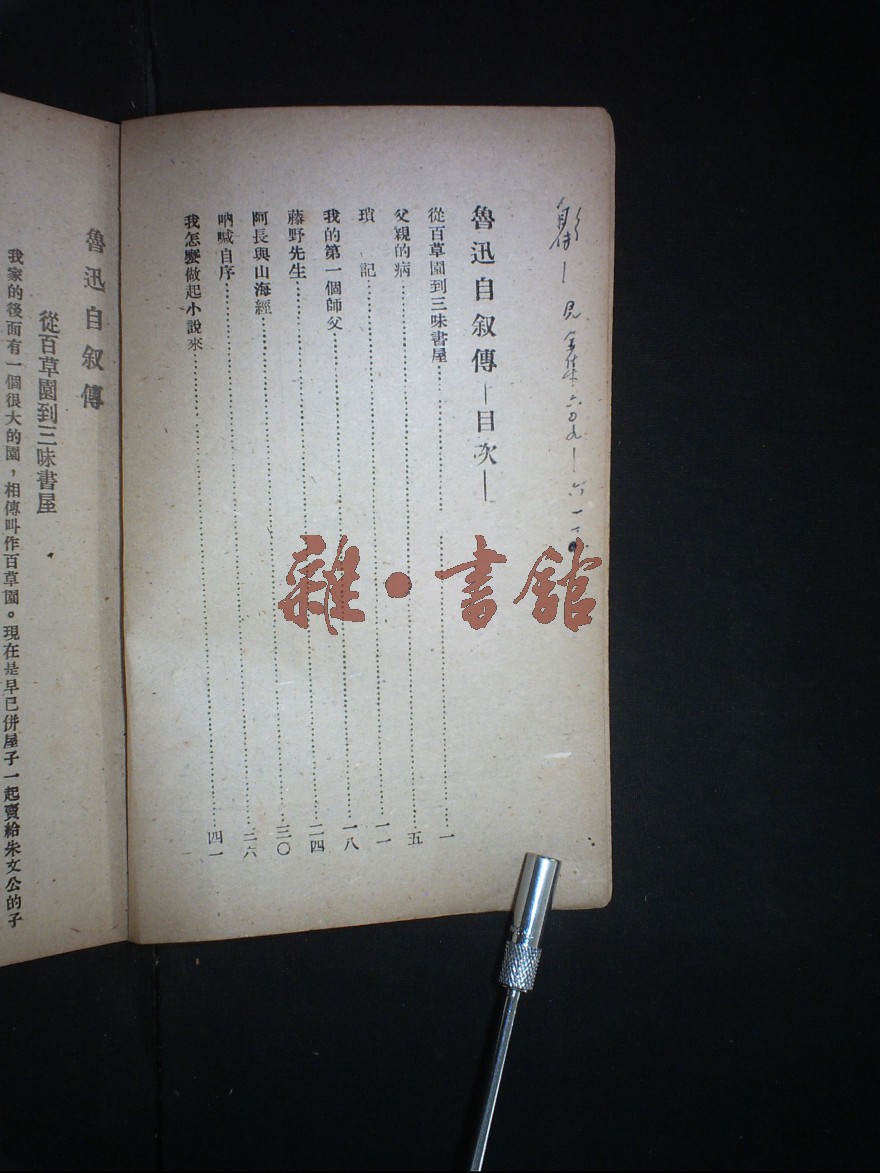 魯迅自叙傳—目次—
從百草園到三味書屋……一
父親的病……五
瑣記……一一
我的第一個師父……一八
藤野先生……二四
阿長與山海經……三〇
吶喊自序……三六
我怎麼做起小說來……四一
魯迅自叙傳
從百草園到三味書屋
我家的後面有一個很大的園，相傳叫作百草園。現在是早已併屋子一起賣給朱文公的子
雜·書館